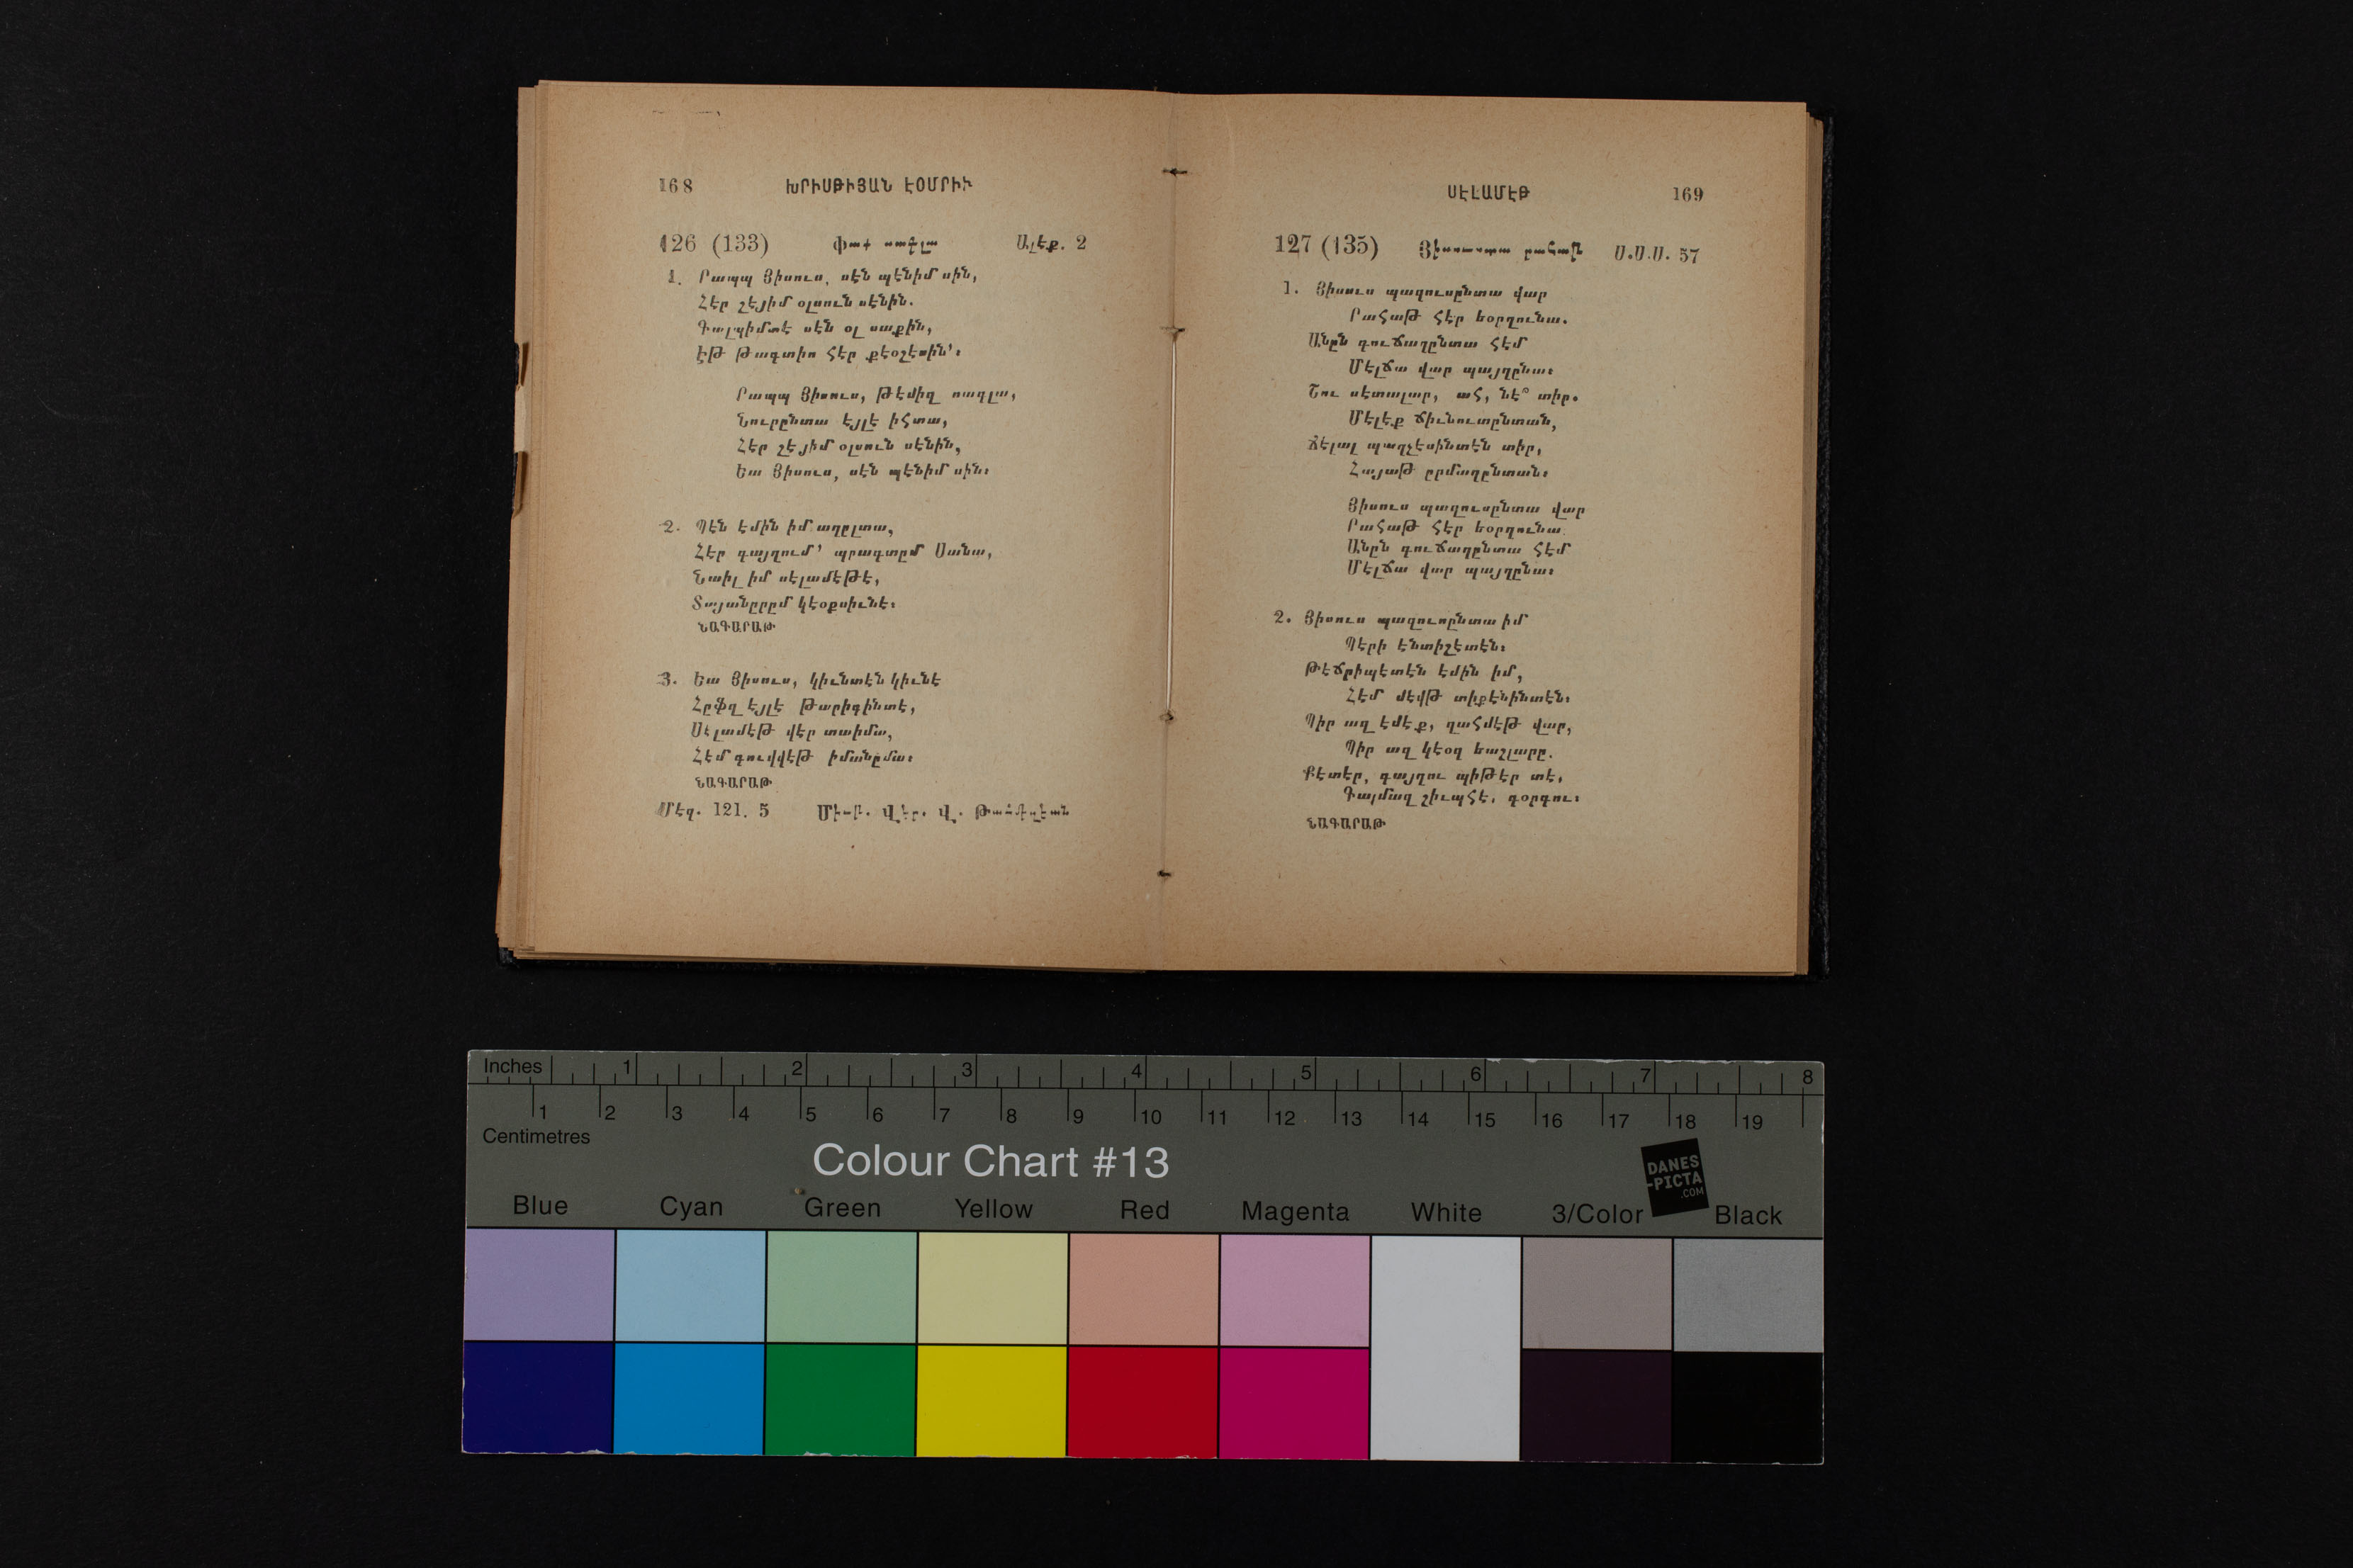 168 ԽՐԻՍԹԻՅԱՆ ԷՕՄՐԻՒ
126 (133) Փաք սաքլա Ալէք. 2
1. Րապպ Յիսուս, սէն պէնիմ սին,
Հէր շէյիմ օլսուն սէնին.
Գալպիմտէ սէն օլ սաքին,
Էթ թագտիս հէր քէօշէսին՚։
Րապպ Յիսուս, թէմիզ սագլա,
Նուրընտա էյլէ իհտա,
Հէր շէյիմ օլսուն սէնին,
Եա Յիսուս, սէն պէնիմ սին։
2. Պէն էմին իմ աղըլտա,
Հէր գայղում՚ պրագտըմ Սանա,
Նաիլ իմ սէլամէթէ,
Տայանըրըմ կէօքսիւնէ։
ՆԱԳԱՐԱԹ
3. Եա Յիսուս, կիւնտէն կիւնէ
Հըֆզ էյլէ թարիգինտէ,
Սէլամէթ վէր տաիմա,
Հէմ գուվվէթ իմանըմա։
ՆԱԳԱՐԱԹ
Մէզ. 121. 5 Վէր. Վ.
ՍԷԼԱՄԷԹ 169
127 (135) Յիսուստա րահաթ Ս.Ս.Ս. 57
1. Յիսուս պաղուսընտա վար
Րահաթ հէր եօրղունա.
Անըն գուճաղընտա հէմ
Մէլճա վար պայղընա։
Շու սէտալար, ահ, նէ՞ տիր.
Մէլէք ճիւնուտընտան,
Ճէլալ պաղչէսինտէն տիր,
Հայաթ ըրմաղընտան։
Յիսուս պաղուսընտա վար
Րահաթ հէր եօրղունա
Անըն գուճաղընտա հէմ
Մէլճա վար պայղընա։
2. Յիսուս պաղուսընտա իմ
Պէրի էնտիշէտէն։
Թէճրիպէտէն էմին իմ,
Հէմ մէվթ տիքէնինտէն։
Պիր ազ էմէք, զահմէթ վար,
Պիր ազ կէօզ եաշլարը.
Քէտէր, գայղու պիթէր տէ,
Գալմազ շիւպհէ, գօրգու։
ՆԱԳԱՐԱԹ
Inches 1 2 3 4 5 6 7 8
1 2 3 4 5 6 7 8 9 10 11 12 13 14 15 16 17 18 19
Centimetres
Colour Chart #13
DANES
-PICTA
.COM
Blue Cyan Green Yellow Red Magenta White 3/Color Black